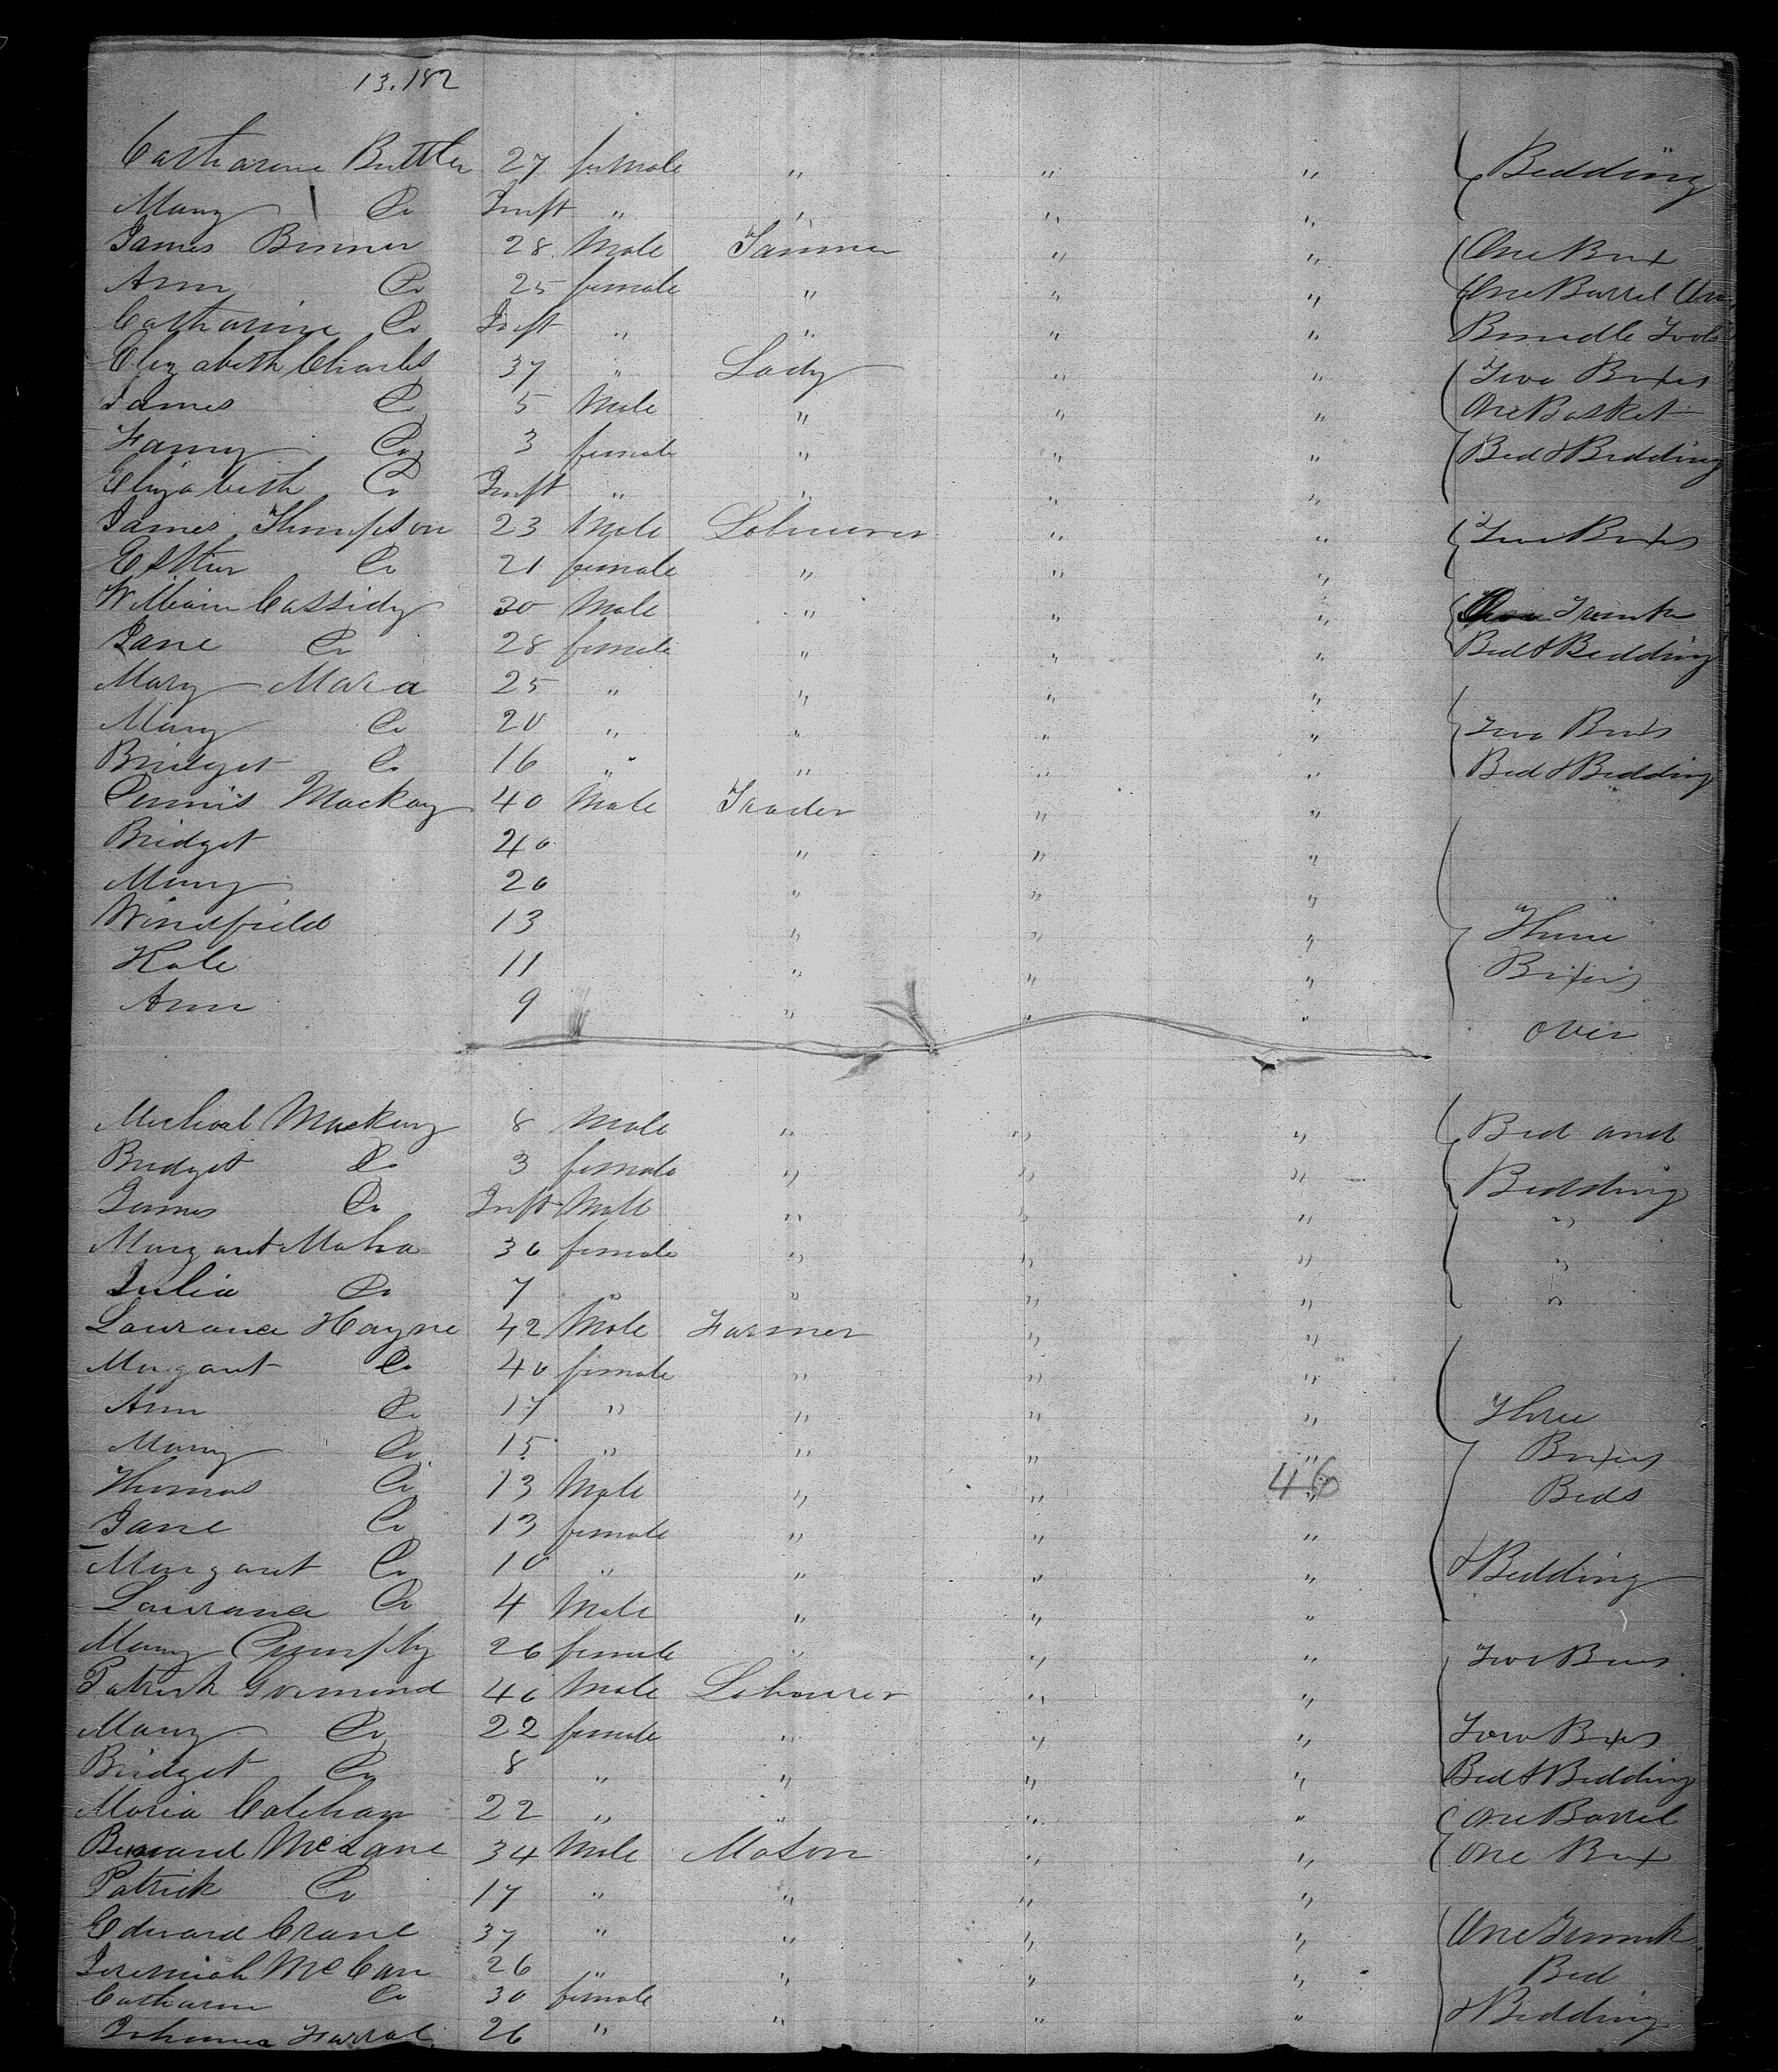 13.182
Catharine Buttler 27 female " " " Bedding
Mary Do Inft " " " "
James Bonner 28 Male Tanner " " One Box
Ann Do 25 female " " " One Barrel One
Catharine Do Inft " " " " Bundle Tools
Elizabeth Charles 37 " Lady " " Two Boxes
James Do 5 Male " " " One Basket
Fanny Do 3 female " " " Bed & Bedding
Elizabeth Do Inft " " " "
James Thompson 23 Male Labourer " " Two Boxes
Esther Do 21 female " " "
William Cassidy 30 Male " " " Trunk
Jane Do 28 female " " " Bed & Bedding
Mary Mara 25 " " " "
Mary Do 20 " " " " Two Boxes
Bridget Do 16 " " " " Bed & Bedding
Dennis Mackay 40 Male Trader " "
Bridget 40 " " "
Mary 20 " " "
Windfield 13 " " " Three
Kate 11 " " " Boxes
Ann 9 " " " over
Michael Mackay 8 Male " " " Bed and
Bridget Do 3 female " " " Bedding
James Do Inft Male " " " "
Margaret Maha 30 female " " " "
Julia Do 7 " " " " "
Laurance Hayne 42 Male Farmer " "
Margaret Do 40 female " " "
Ann Do 17 " " " " Three
Mary Do 15 " " " " Boxes
Thomas Do 13 Male " " " 46 Beds
Jane Do 13 female " " "
Margaret Do 10 " " " " & Bedding
Laurance Do 4 Male " " "
Mary 26 female " " " Two Boxes
Patrick Gormond 40 Male Labourer " "
Mary Do 22 female " " " Two Boxes
Bridget Do 8 " " " " Bed & Bedding
Maria Calehan 22 " " " " One Barrel
Bernard McLane 34 Male Mason " " One Box
Patrick Do 17 " " " "
Edward Crane 37 " " " " One Trunk
Jeremiah McCan 26 " " " " Bed
Catharine Do 30 female " " " & Bedding
Johanna Farral 26 " " " "